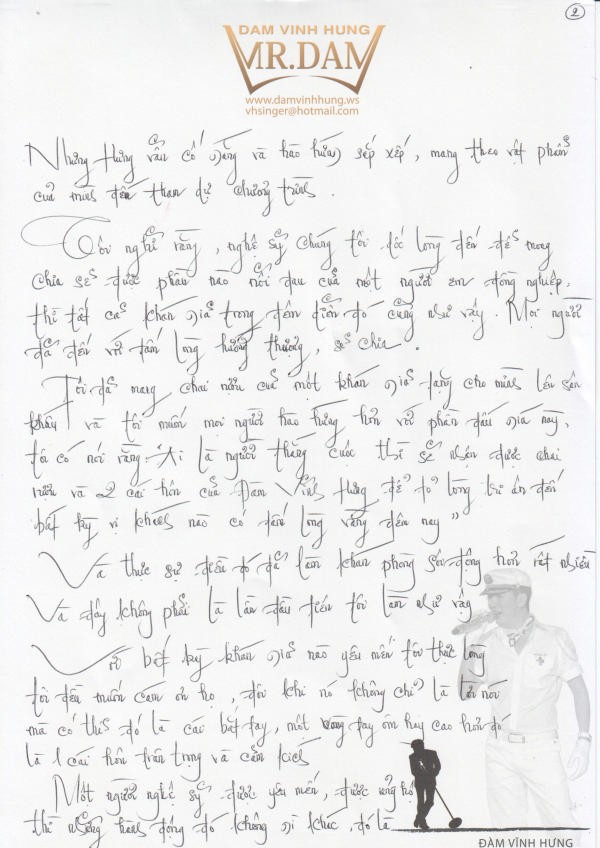 2
DAM VINH HUNG
MR.DAM
www.damvinhhung.ws
vhsinger@hotmail.com
Nhưng Hưng vẫn cố gắng và hào hứng sắp xếp, mang theo vật phẩm
của mình đến tham dự chương trình.
Tôi nghĩ rằng, nghệ sỹ chúng tôi dốc lòng đến để mong
chia sẻ được phần nào nỗi đau của một người em đồng nghiệp.
thì tất cả khán giả trong đêm diễn đó cũng như vậy. Mọi người
đã đến với tấm lòng hướng thượng, sẻ chia.
Tôi đã mang chai rượu của một khán giả tặng cho mình lên sân
khấu và tôi muốn mọi người hào hứng hơn với phần đấu giá này,
tôi có nói rằng "Ai là người thắng cuộc thì sẽ nhận được chai
rượu và 2 cái hôn của Đàm Vĩnh Hưng để tỏ lòng tri ân đến
bất kỳ vị khách nào có tấm lòng vàng đêm nay"
Và thực sự điều đó đã làm khán phòng sôi động hơn rất nhiều
Và đây không phải là lần đầu tiên tôi làm như vậy
Với bất kỳ khán giả nào yêu mến tôi thực lòng
tôi đều muốn cám ơn họ, đôi khi nó không chỉ là lời nói
mà có thể đó là cái bắt tay, một vòng tay ôm hay cao hơn đó
là 1 cái hôn trân trọng và cảm kích
Một người nghệ sỹ được yêu mến, được ủng hộ
thì những hành động đó không gì khác, đó là
ĐÀM VĨNH HƯNG